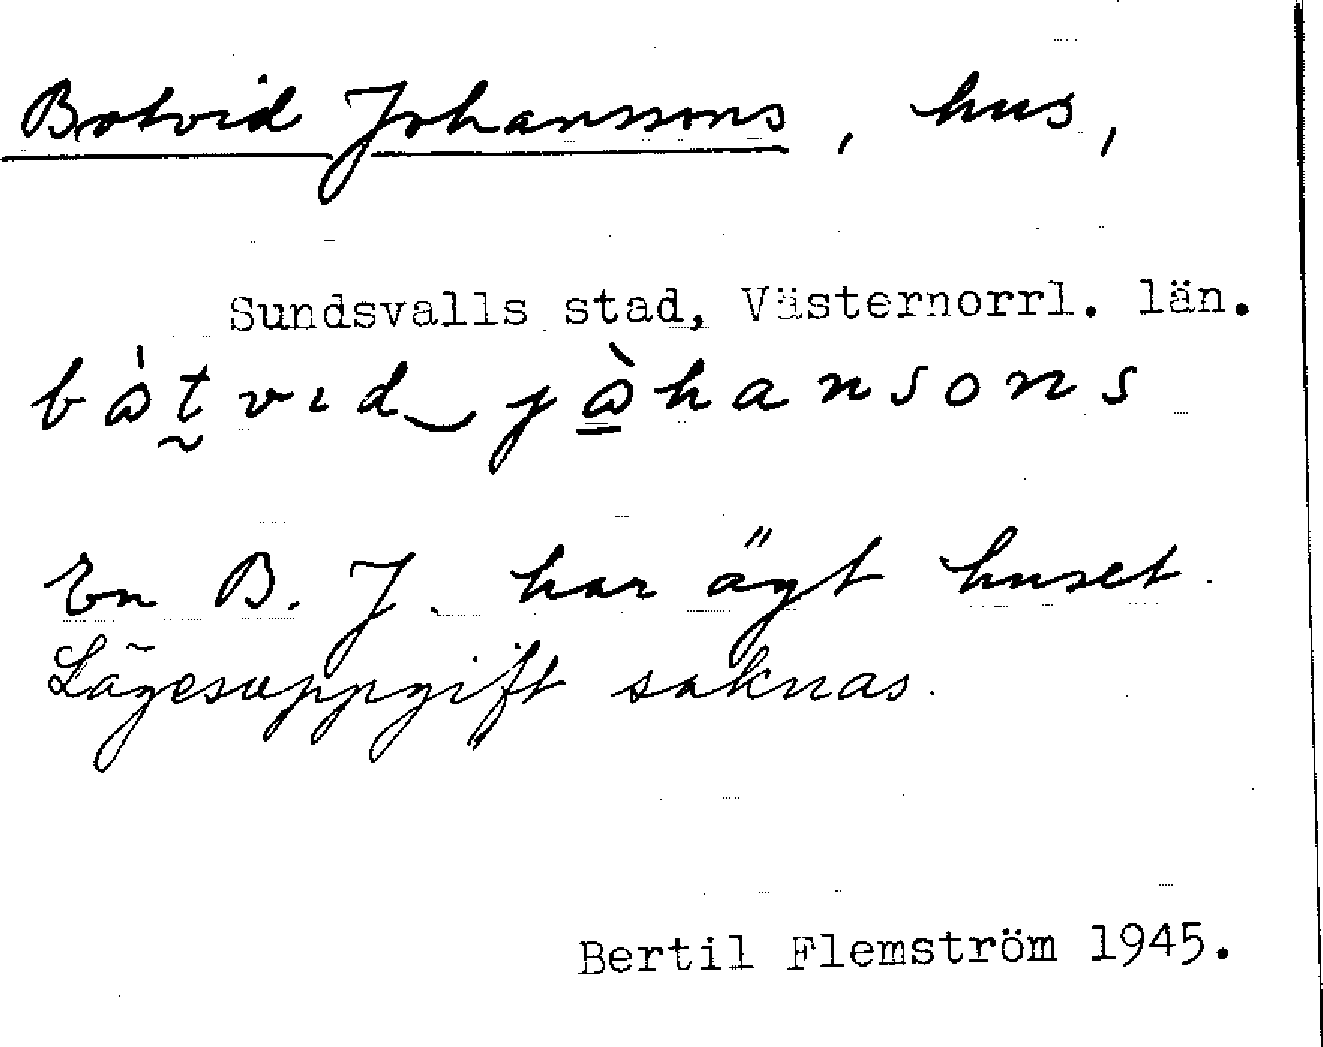 Botvid Johanssons, hus,
Sundsvalls stad, Västernorrl. län.
båt̰vıd‿jå̱̀hansons
En B. J. har ägt huset.
Lägesuppgift saknas.
Bertil Flemström 1945.